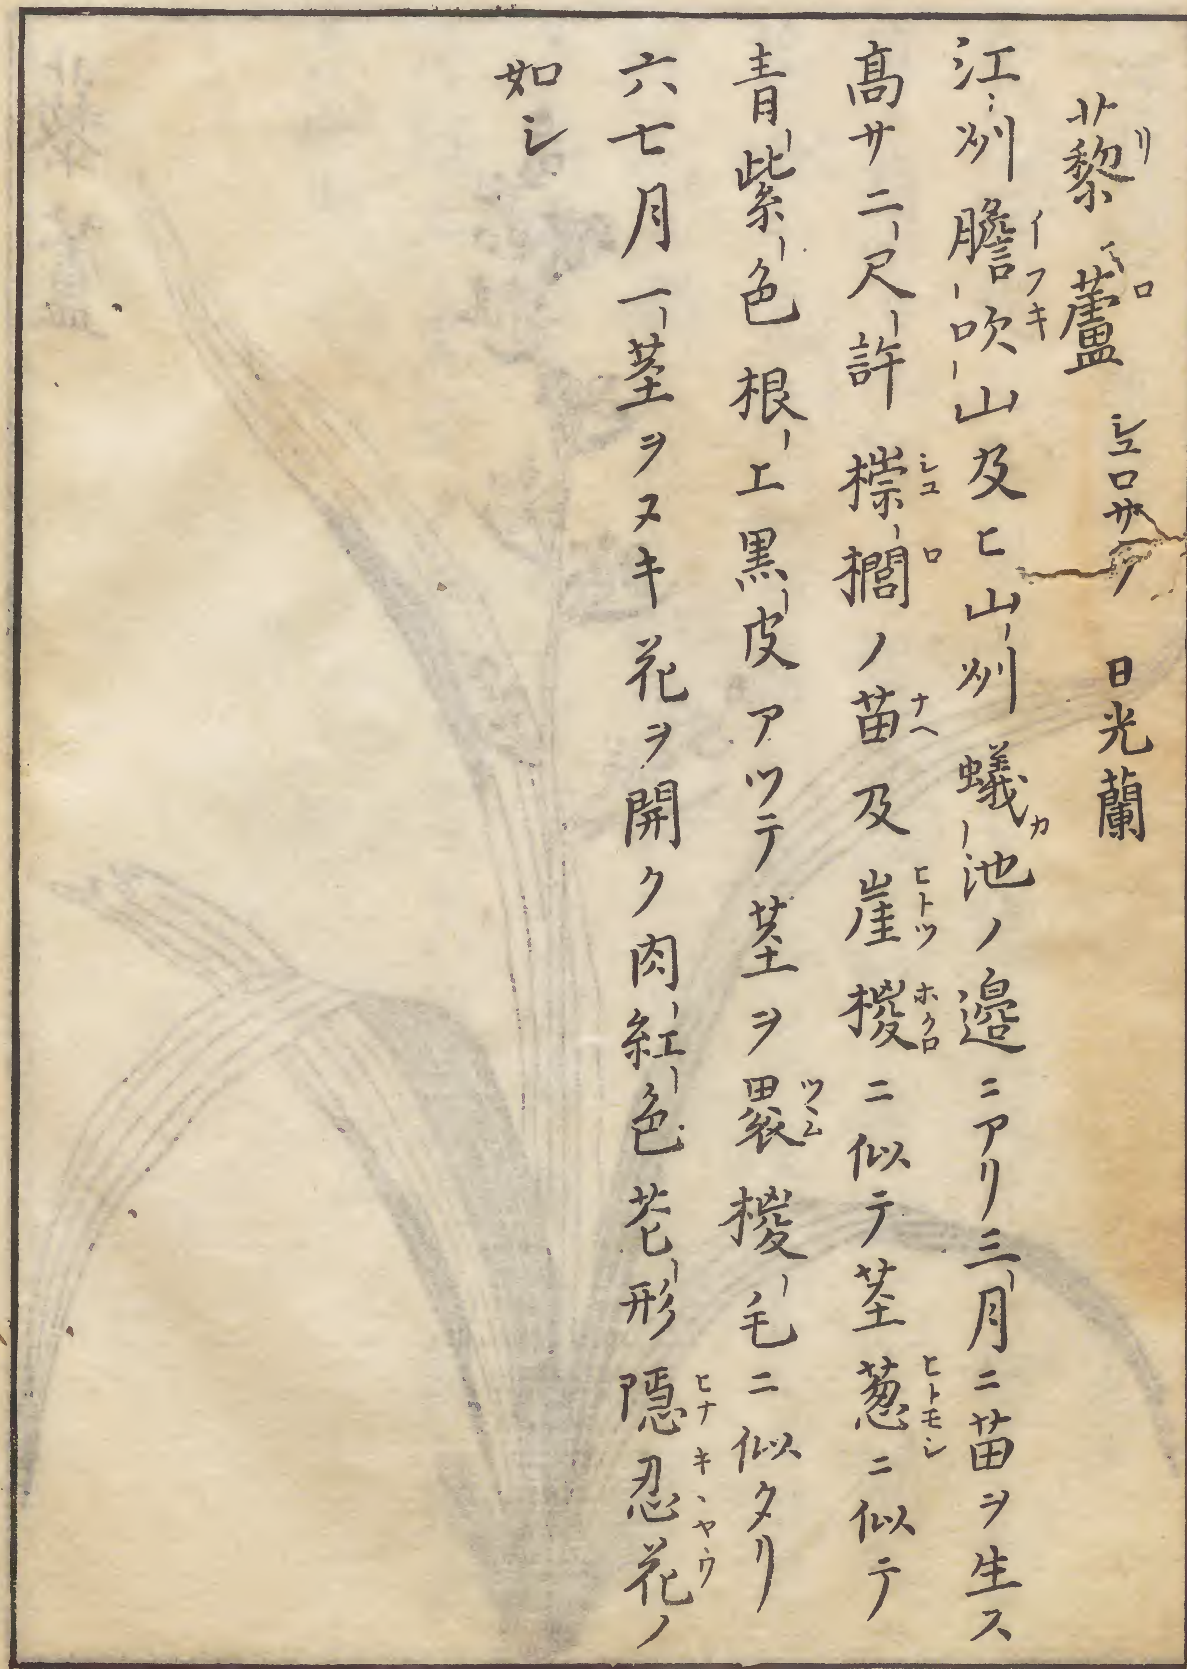 藜蘆 シュロサウ 日光蘭
江州膽吹山及ヒ山州蟻池ノ邉ニアリ三月ニ苗ヲ生ス
髙サ二尺許椶櫚ノ苗及崖椶ニ似テ茎葱ニ似テ
青紫色根上黒皮アツテ茎ヲ裹椶毛ニ似タリ
六七月一茎ヲヌキ花ヲ開ク肉紅色花形隠忍花ノ
如シ